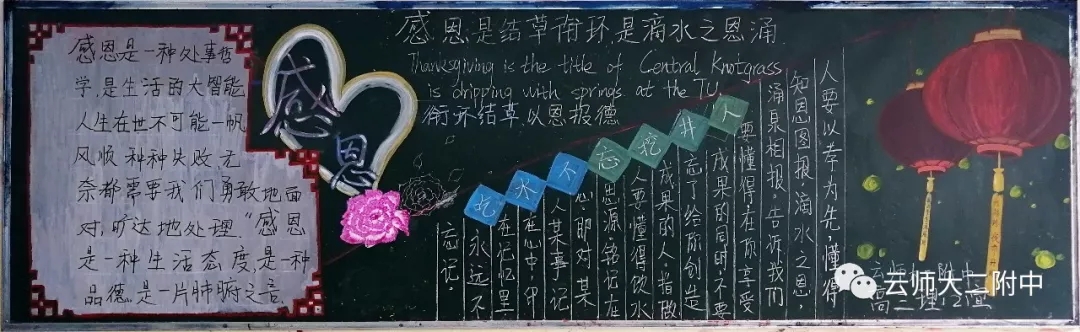 感恩是一种处事哲
学,是生活的大智能
人生在世不可能一帆
风顺 种种失败无
奈都需要我们勇敢地面
对,旷达地处理."感恩
是一种生活态度,是一种
品德,是一片肺腑之言.
感恩
感恩是结草衔环,是滴水之恩涌
Thanksgiving is the title of Central Knotgrass
is dripping with springs at the TU.
衔环结草,以恩报德
吃水不忘挖井人
人要以孝为先懂得
知恩图报,滴水之恩,
涌泉相报,告诉我们
要懂得在你享受
成果的同时不要
忘了给你创造
成果的人,指做
人要懂得饮水
思源铭记在
心即对某
人某事记
在心中,印
在记忆里
永远不
忘记.
云师大二附中